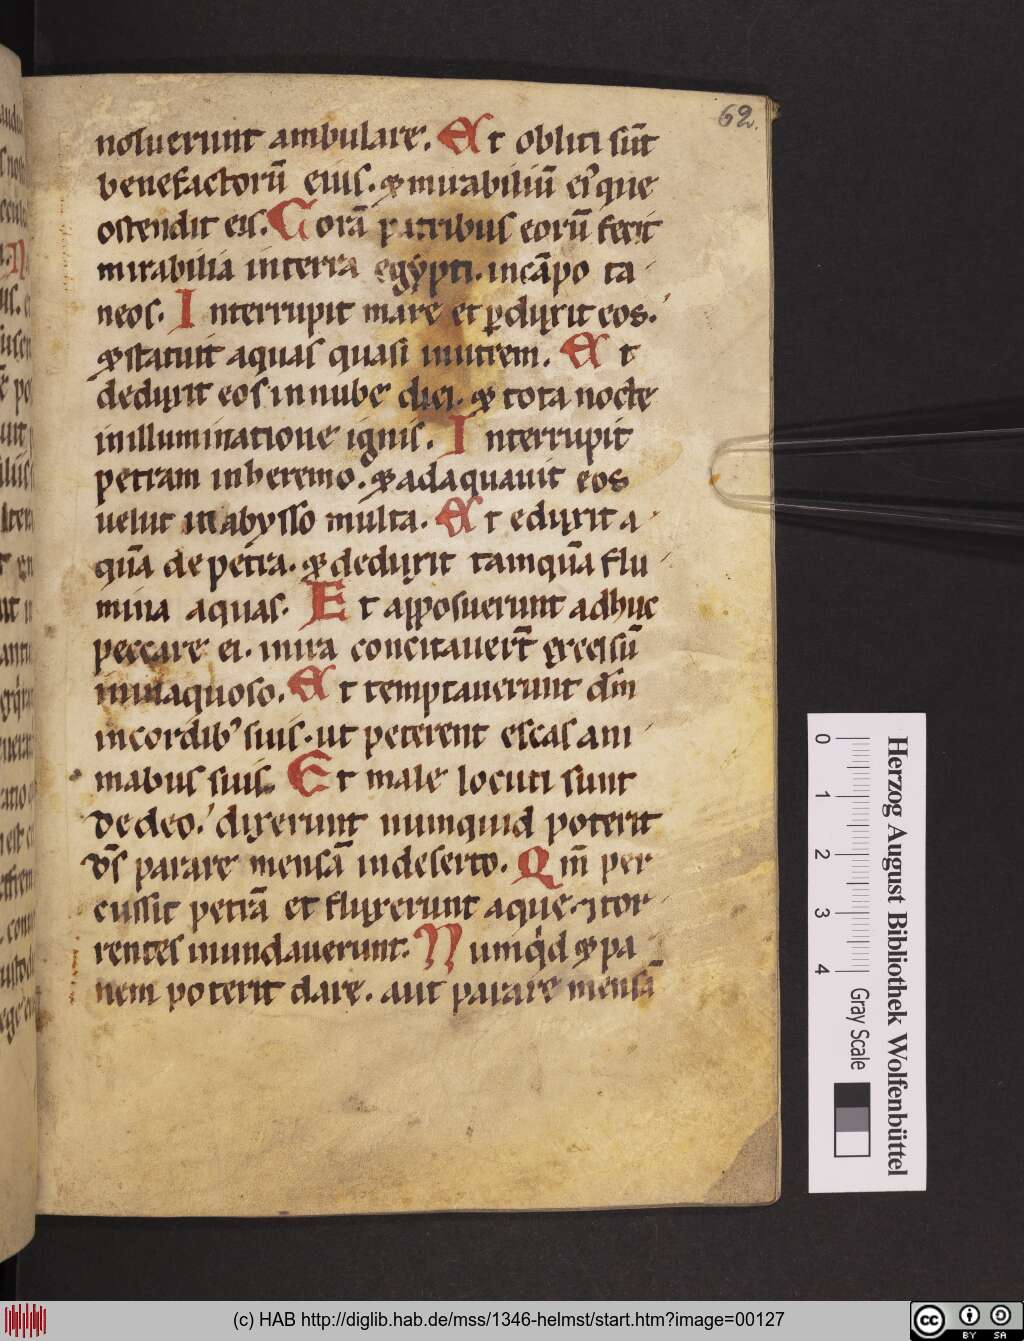 62.
noluerunt ambulare. Et obliti sūt
benefactorū eius. & mirabiliū ei᷒ que
ostendit eis. Corā patribus eorū fecit
mirabilia in terra egypti. in cāpo ta
neos. Interrupit mare et ꝑduxit eos.
& statuit aquas quasi in utrem. Et
deduxit eos in nube diei. & tota nocte
in illuminatione ignis. Interrupit
petram in heremo. & adaquauit eos
uelut in abysso multa. Et eduxit a
quā de petra. & deduxit tamquā flu
mina aquas. Et apposuerunt adhuc
peccare ei. in ira concitauerт̄ excelsū
in inaquoso. Et temptauerunt dm̄
in cordib᷒ suis. ut peterent escas ani
mabus suis. Et male locuti sunt
de deo. dixerunt numquid poterit
ds̄ parare mensā in deserto. Qm̄ per
cussit petrā et fluxerunt aque. ⁊ tor
rentes inundauerunt. Numqd & pa
nem poterit dare. aut parare mensā
0 1 2 3 4 Gray Scale
Herzog August Bibliothek Wolfenbüttel
(c) HAB http://diglib.hab.de/mss/1346-helmst/start.htm?image=00127
cc BY SA